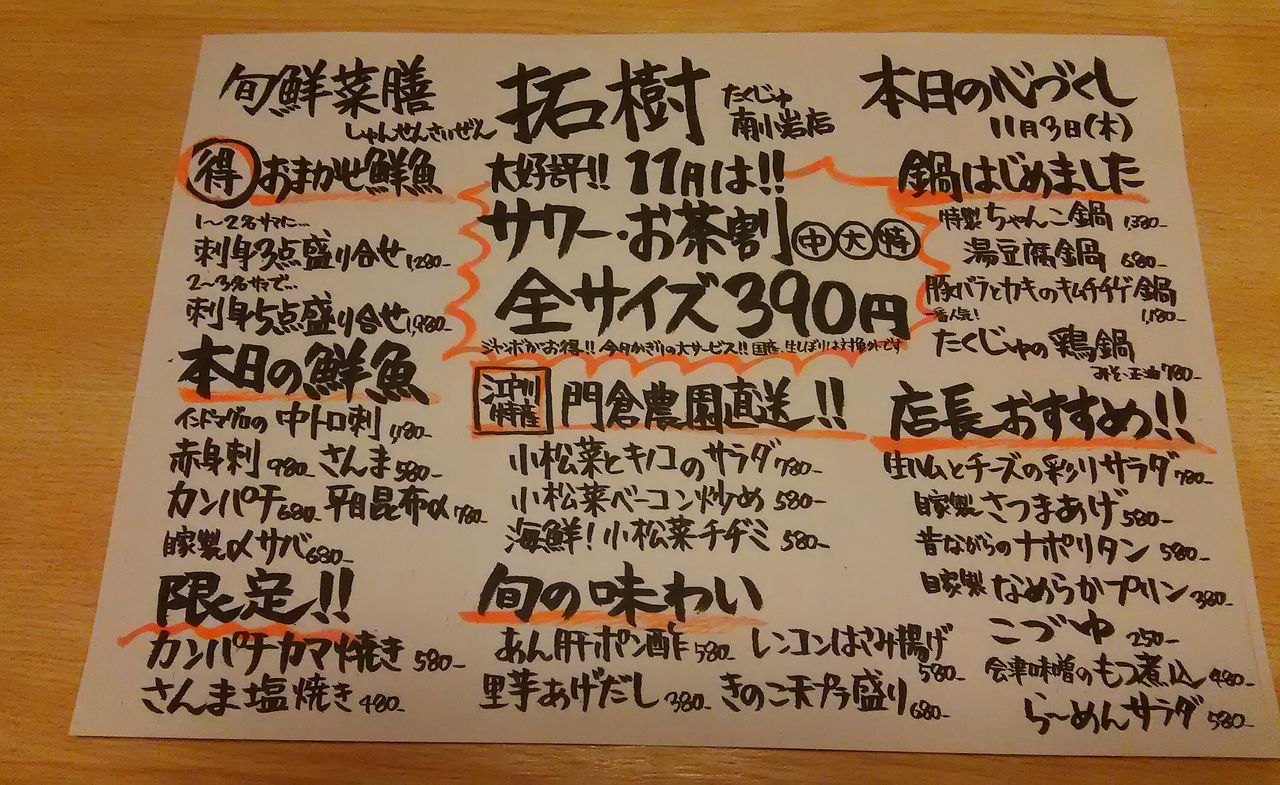 旬鮮菜膳
しゅんせんさいぜん
拓樹
たくじゅ
南小岩店
本日の心づくし
11月3日(木)
得 おまかせ鮮魚
1〜2名サマに…
刺身3点盛り合せ 1,280-
2〜3名サマで…
刺身5点盛り合せ 1,980-
本日の鮮魚
インドマグロの中トロ刺 1,180-
赤身刺 980- さんま 580-
カンパチ 680- 平目昆布〆 780-
自家製〆サバ 680-
限定!!
カンパチカマ焼き 580-
さんま塩焼き 480-
大好評!! 11月は!!
サワー・お茶割 中 大 特
全サイズ390円
ジャンボがお得!! 今月かぎりの大サービス!! 国産、生しぼりは対象外です
江戸川特産 門倉農園直送!!
小松菜とキノコのサラダ 780-
小松菜ベーコン炒め 580-
海鮮!小松菜チヂミ 580-
旬の味わい
あん肝ポン酢 580- レンコンはさみ揚げ 580-
里芋あげだし 380- きのこ天プラ盛り 680-
鍋はじめました
特製ちゃんこ鍋 1,380-
湯豆腐鍋 680-
豚バラとカキのキムチチゲ鍋
一番人気! 1,180-
たくじゅの鶏鍋
みそ・正油 780-
店長おすすめ!!
生ハムとチーズの彩りサラダ 780-
自家製さつまあげ 580-
昔ながらのナポリタン 580-
自家製なめらかプリン 380-
こづゆ 250-
会津味噌のもつ煮込 480-
らーめんサラダ 580-